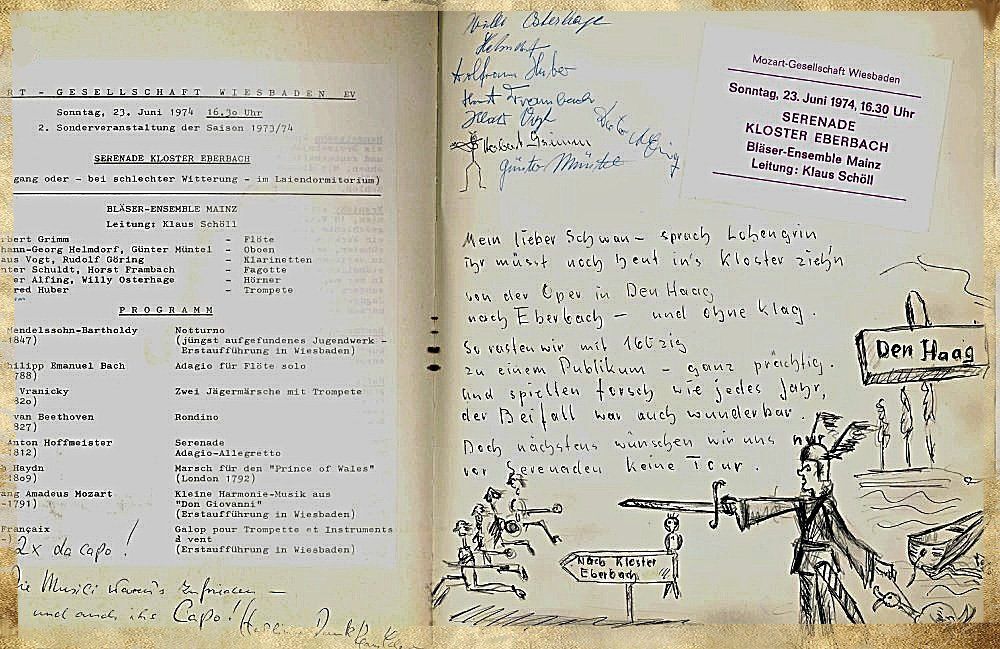 RT - GESELLSCHAFT WIESBADEN EV
Sonntag, 23. Juni 1974 16.30 Uhr
2. Sonderveranstaltung der Saison 1973/74
SERENADE KLOSTER EBERBACH
gang oder - bei schlechter Witterung - im Laiendormitorium)
BLÄSER-ENSEMBLE MAINZ
Leitung: Klaus Schöll
rbert Grimm - Flöte
hann-Georg Helmdorf, Günter Müntel - Oboen
aus Vogt, Rudolf Göring - Klarinetten
nter Schuldt, Horst Frambach - Fagotte
er Alfing, Willy Osterhage - Hörner
red Huber - Trompete
PROGRAMM
Mendelssohn-Bartholdy Notturno
1847) (jüngst aufgefundenes Jugendwerk -
Erstaufführung in Wiesbaden)
hilipp Emanuel Bach Adagio für Flöte solo
788)
Vranicky Zwei Jägermärsche mit Trompete
82o)
van Beethoven Rondino
827)
Anton Hoffmeister Serenade
1812) Adagio-Allegretto
Haydn Marsch für den "Prince of Wales"
18o9) (London 1792)
ang Amadeus Mozart Kleine Harmonie-Musik aus
-1791) "Don Giovanni"
(Erstaufführung in Wiesbaden)
Françaix Galop pour Trompette et Instruments
à vent
(Erstaufführung in Wiesbaden)
2x da capo!
Die Musici waren's zufrieden -
und auch ihr Capo!
Willi Osterhage
Helmdorf
Wolfram Huber
Horst Frambach
Herbert Grimm
Günter Müntel
Mozart-Gesellschaft Wiesbaden
Sonntag, 23. Juni 1974, 16.30 Uhr
SERENADE
KLOSTER EBERBACH
Bläser-Ensemble Mainz
Leitung: Klaus Schöll
Mein lieber Schwan - sprach Lohengrin
ihr müsst noch heut in's Kloster zieh'n
von der Oper in Den Haag
nach Eberbach - und ohne Klag.
So rasten wir mit 160zig
zu einem Publikum - ganz prächtig.
und spielten forsch wie jedes Jahr,
der Beifall war auch wunderbar.
Doch nächstens wünschen wir uns nur
vor Serenaden keine Tour.
Den Haag
Nach Kloster
Eberbach